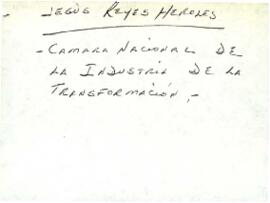 - JESÚS REYES HEROLES
- CAMARA NACIONAL DE
LA INDUSTRIA DE LA
TRANSFORMACIÓN.-